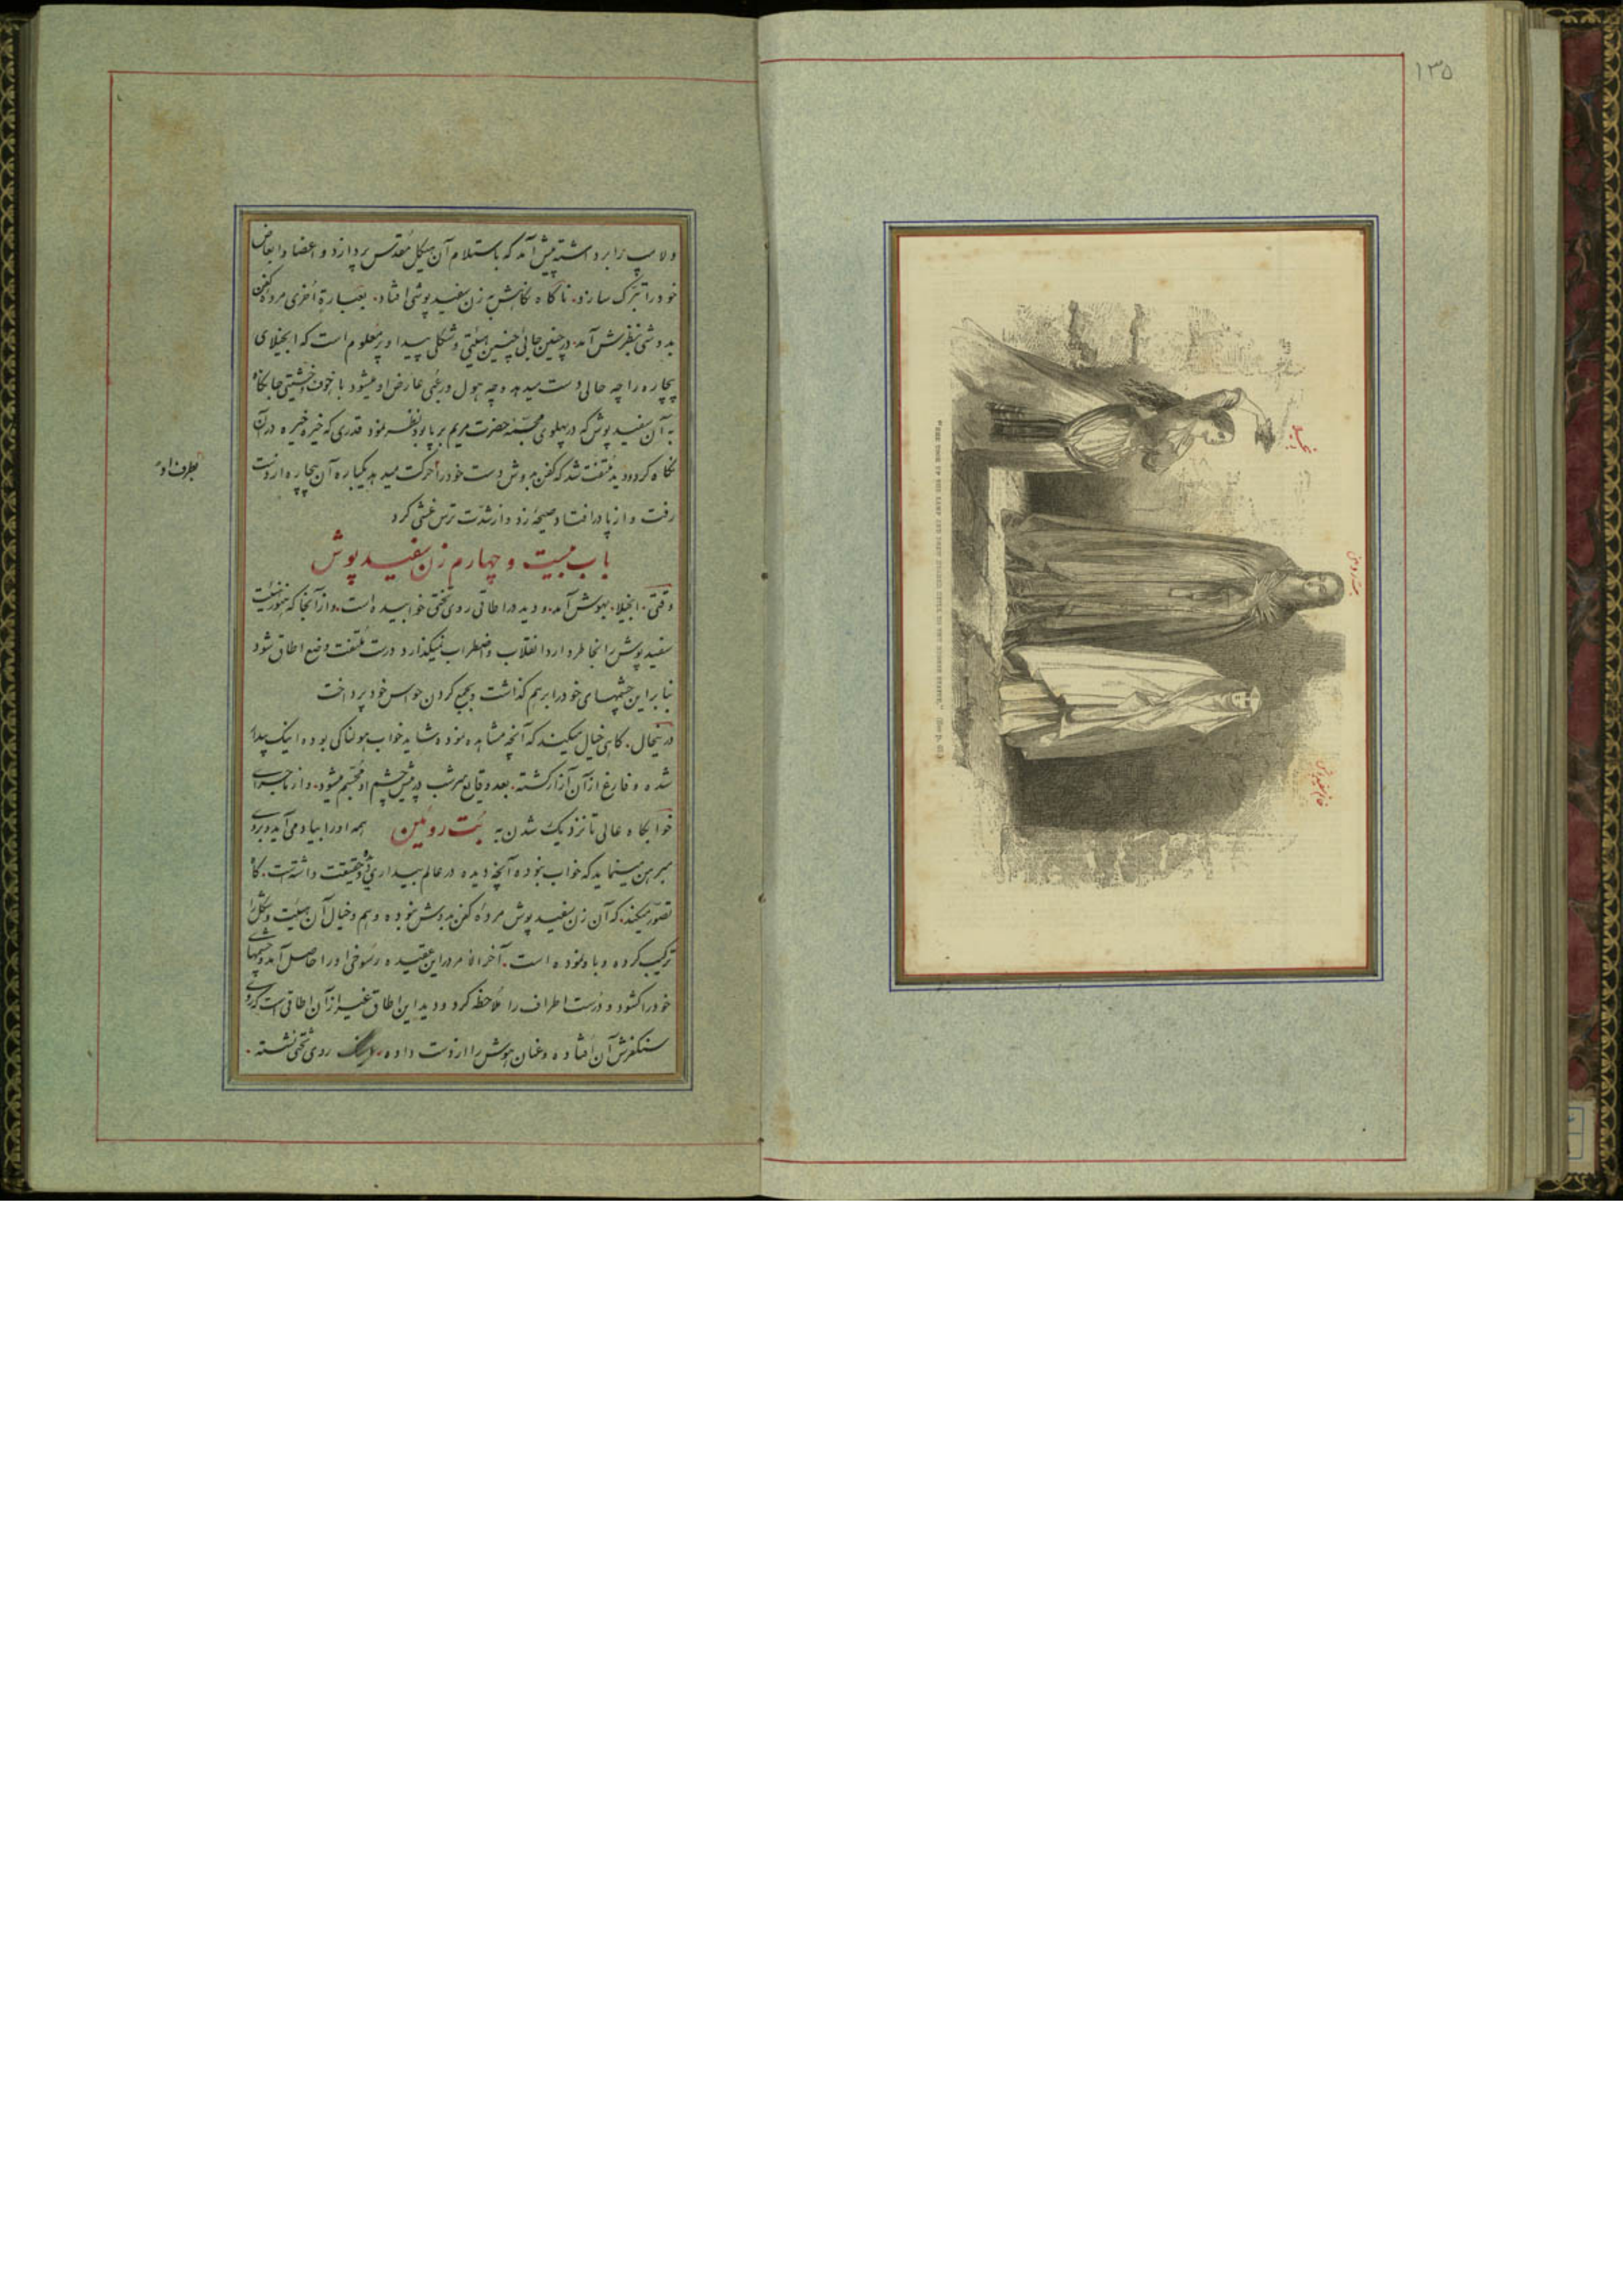 ۱۳۵
بت رومن
خانم سفیدپوش
"SHE TOOK UP THE LAMP AND DREW NEARER STILL TO THE BRONZE STATUE."
و لامپ را برداشته پیش آمد که باستلام آن هیکل مقدس پردازد و اعضا و ابعاض
خود را تبرک سازد. ناگاه نگاهش به زن سفیدپوشی افتاد. بعبارة اُخری مرده کفن
بدوشی بنظرش آمد. در چنین جائی چنین هیئتی و شکلی پیدا و پر معلوم است که انجیلای
بیچاره را چه حالی دست میدهد و چه هول و رعبی عارض او میشود با خوف و خشیتی جانکاه
به آن سفیدپوش که در پهلوی مجسمه حضرت مریم برپا بود نظر نمود قدری که خیره خیره در آن
نگاه کرد و دید ملتفت شد که کفن بدوش دست خود را حرکت میدهد یکباره آن بیچاره از دست
بطرف او
رفت و از پا در افتاد و صیحه زد و از شدت ترس غشی کرد
باب بیست و چهارم زن سفید پوش
وقتی. انجیلا. بهوش آمد. و دید در اطاقی روی تختی خوابیده است. و از آنجا که هنوز هیئت
سفیدپوش را بخاطر دارد انقلاب و اضطراب نمیگذارد درست ملتفت وضع اطاق شود
بنابراین چشمهای خود را برهم گذاشت و بجمع کردن حواس خود پرداخت
در اینحال. گاهی خیال میکند که آنچه مشاهده نموده شاید خواب هولناکی بوده اینک بیدار
شده و فارغ از آن آزار گشته. بعد وقایع سرشب در پیش چشم او مجسم میشود. و از ماجرای
خوابگاه عالی تا نزدیک شدن به بُت رومن همه او را بیاد می آید و بروی
مبرهن مینماید که خواب نبوده آنچه دیده در عالم بیداری بوده و حقیقت داشته است. گاه
تصور میکند. که آن زن سفیدپوش مرده کفن بدوش نبوده و وهم و خیال آن هیئت و شکل را
ترکیب کرده و باو نموده است. آخر الامر در این عقیده رسوخی او را حاصل آمد و چشمهای
خود را گشود و درست اطراف را ملاحظه کرد و دید این اطاق غیر از آن اطاقی است که روی
سنگفرش آن افتاده و عنان هوش را از دست داده. روی تختی نشسته.